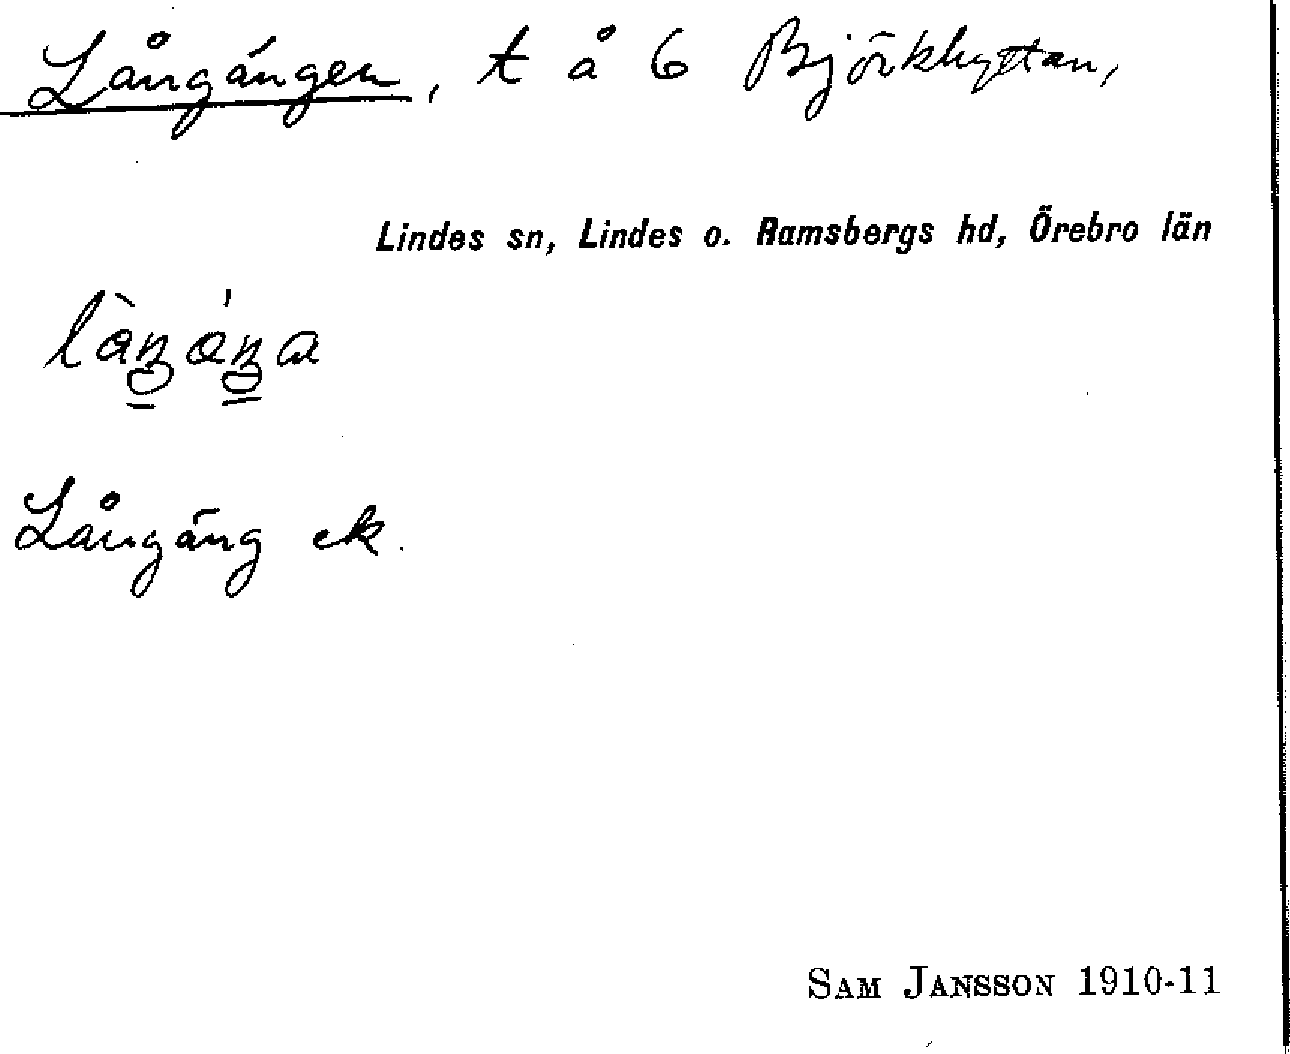 Långängen, t å 6 Björkhyttan,
Lindes sn, Lindes o. Ramsbergs hd, Örebro län
Långäng ek.
SAM JANSSON 1910-11